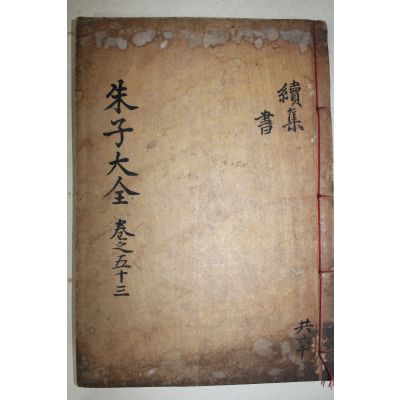 續集
書
朱子大全 卷之五十三
共六十